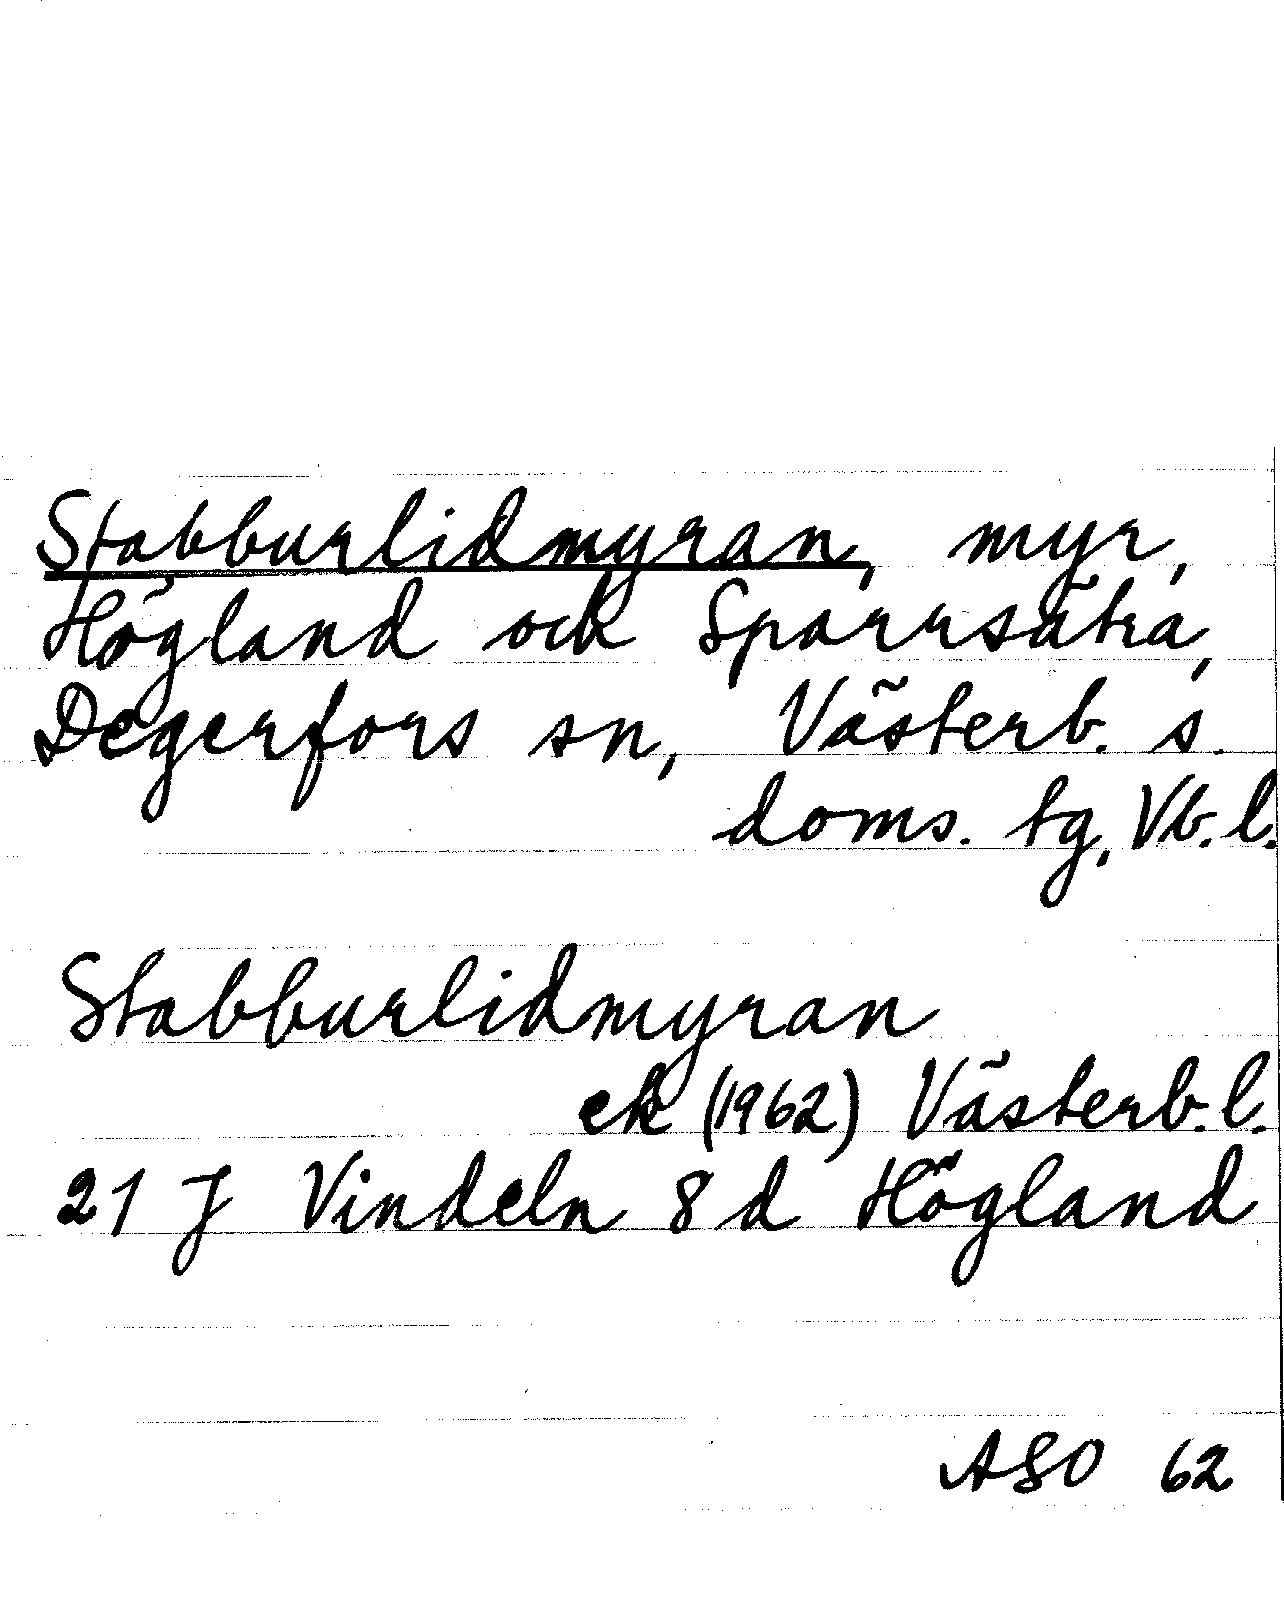 Stabburlidmyran, myr,
Högland och Sparrsätra,
Degerfors sn, Västerb. s.
doms. tg, Vb. l.
Stabburlidmyran
ek (1962) Västerb. l.
21 J Vindeln 8 d Högland
ASO 62